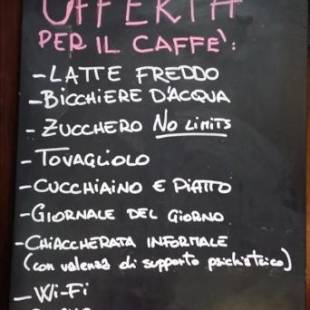 OFFERTA
PER IL CAFFE':
- LATTE FREDDO
- BICCHIERE D'ACQUA
- ZUCCHERO NO LIMITS
- TOVAGLIOLO
- CUCCHIAINO E PIATTO
- GIORNALE DEL GIORNO
- CHIACCHERATA INFORMALE
(con valenza di supporto psichiatrico)
- WI-FI